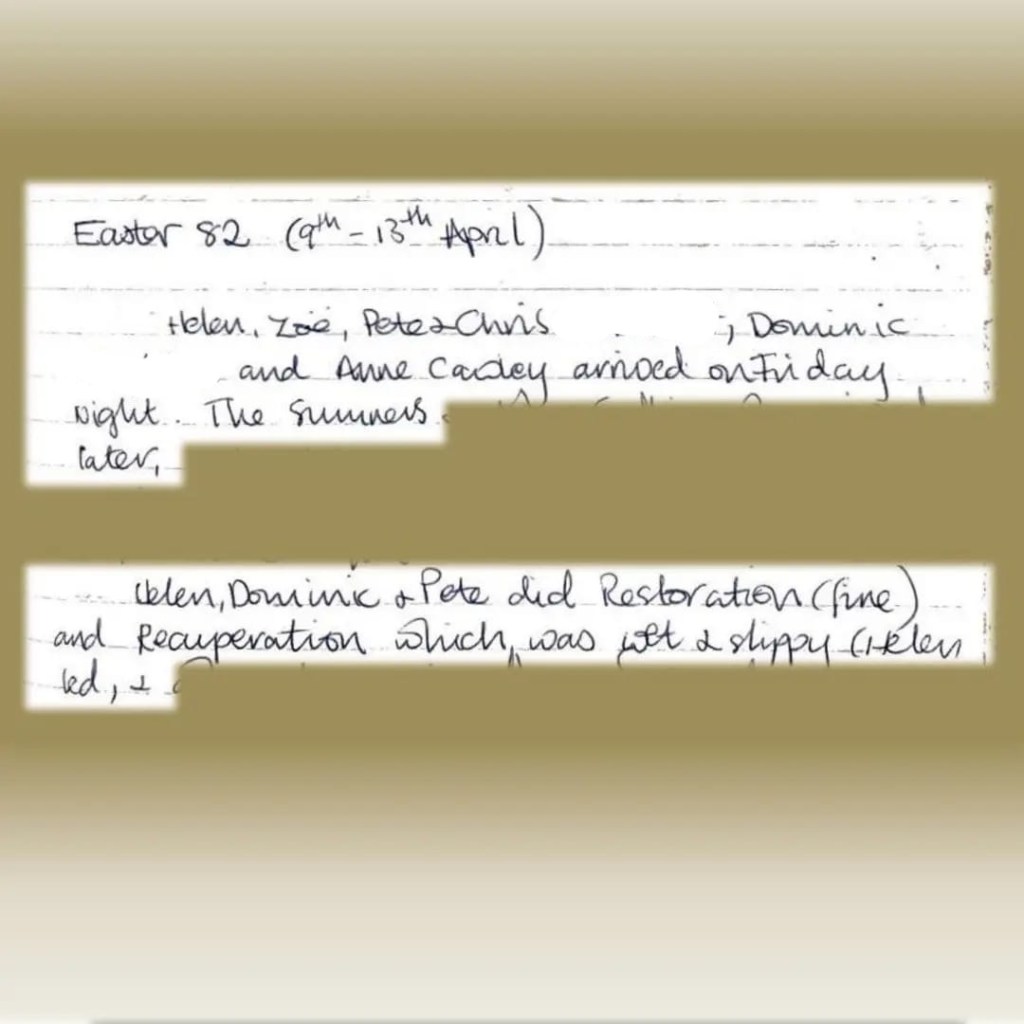 Easter 82 (9th - 13th April)
Helen, Zoë, Pete & Chris ; Dominic
and Anne arrived on Friday
night. The Summers
later,
Helen, Dominic & Pete did Restoration (fine)
and Recuperation which was wet & slippy (Helen
led, &